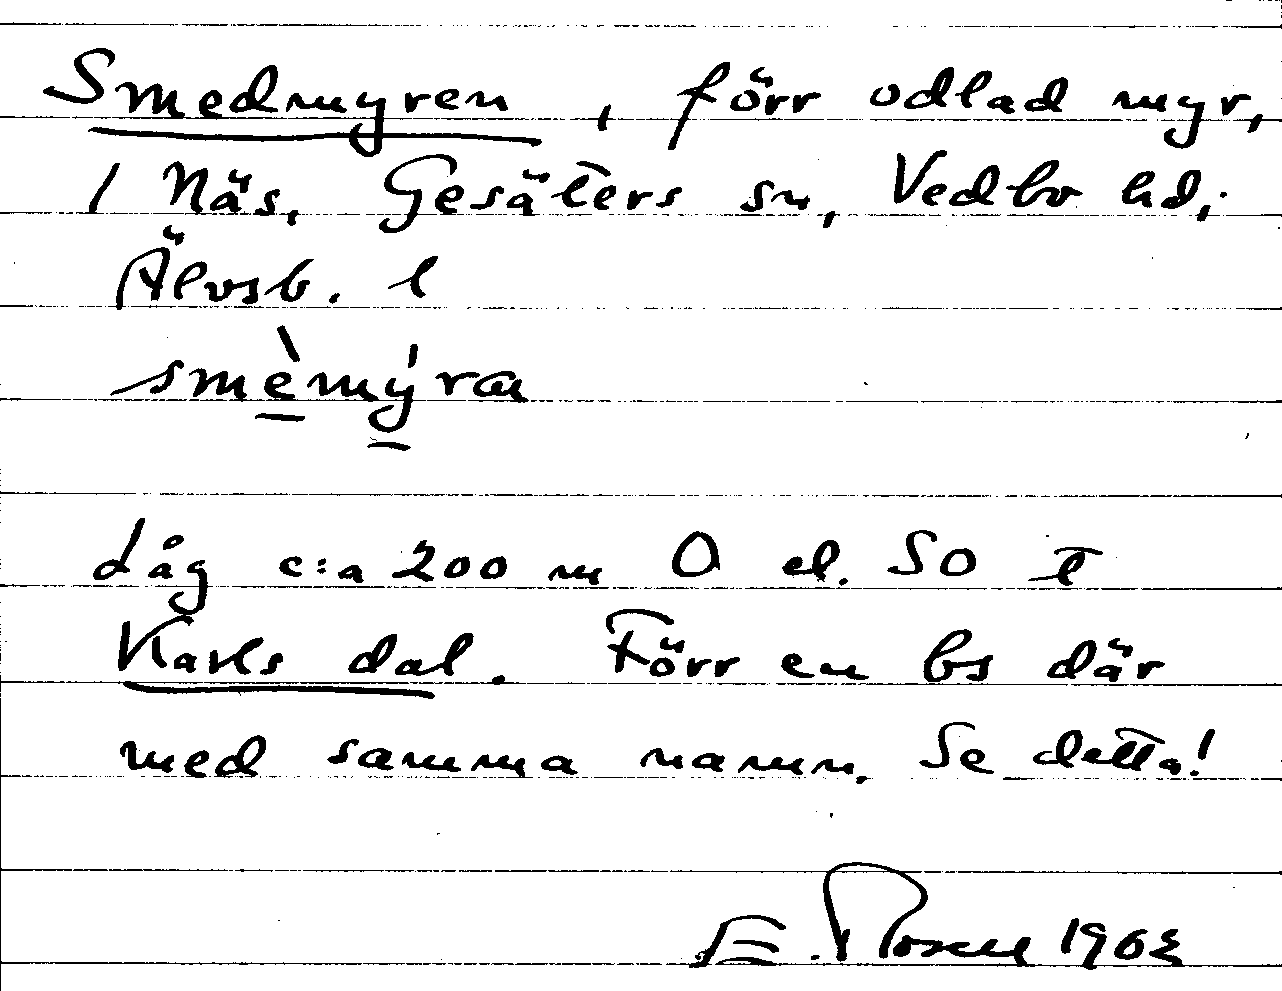 Smedmyren, förr odlad myr,
i Näs, Gesäters sn, Vedbo hd,
Älvsb. l
smèmýra
Låg c:a 200 m O el. SO t
Karls dal. Förr en bs där
med samma namn. Se detta!
E. Rosen 1962